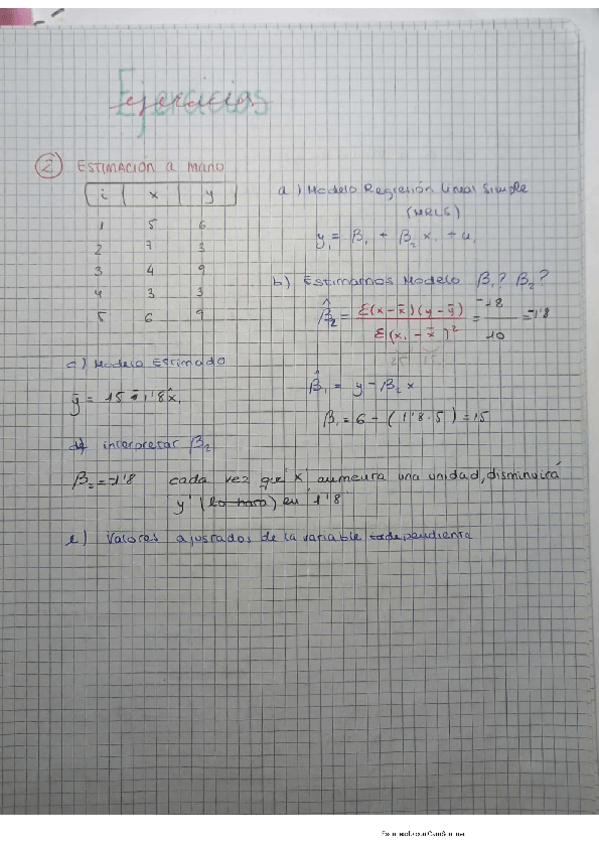 Ejercicios
2 ESTIMACIÓN a mano
i x y
1 5 6
2 7 3
3 4 9
4 3 3
5 6 9
a) Modelo Regresión Lineal Simple
(MRLS)
y₁ = β₁ + β₂ x₁ + u₁
b) Estimamos Modelo β₁? β₂?
β̂₂ = Σ(x-x̄)(y-ȳ) / Σ(x₁-x̄)² = -18 / 10 = -1'8
β̂₁ = y - β₂ x
β₁ = 6 - (1'8·5) = 15
c) Modelo Estimado
ȳ = 15 - 1'8 x̂₁
d) interpretar β₂
β₂ = -1'8 cada vez que 'x' aumenta una unidad, disminuirá
y' (lo hará) en '1'8'
e) Valores ajustados de la variable dependiente